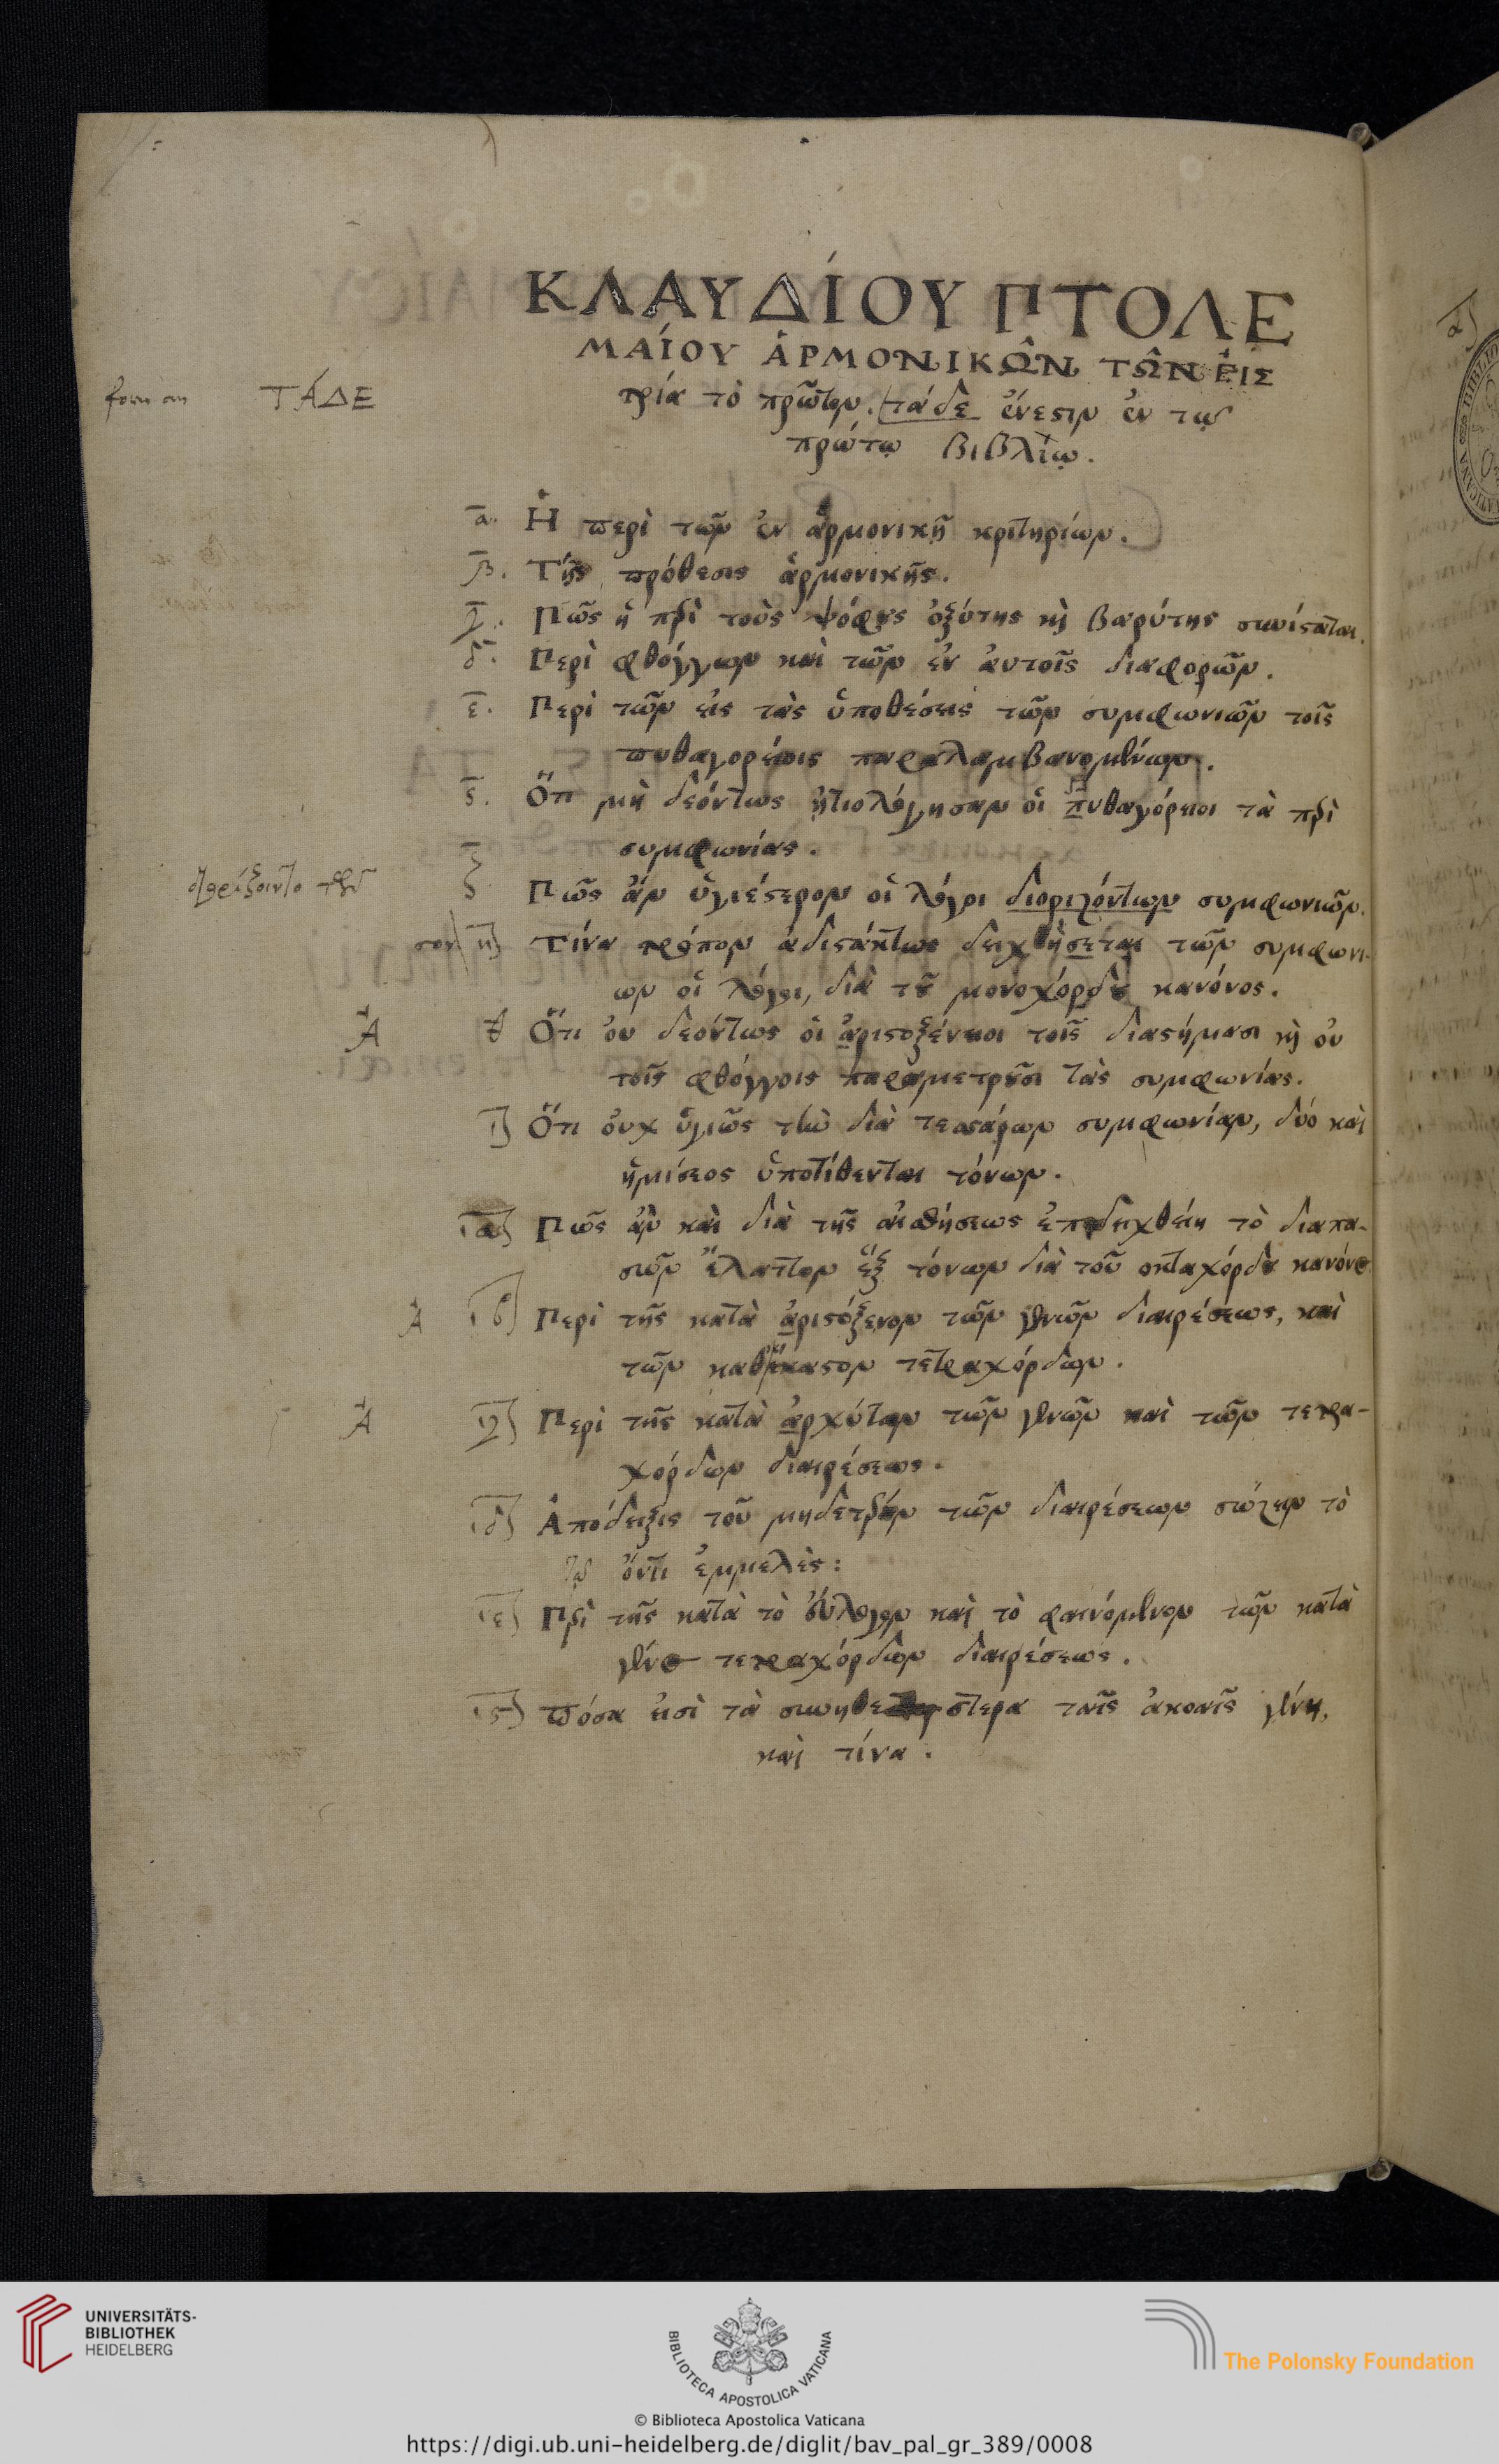 ΚΛΑΥΔΊΟΥ ΠΤΟΛΕ
ΜΑΊΟΥ ἉΡΜΟΝΙΚΩ͂Ν ΤΩ͂Ν ἘΙΣ
ΤΆΔΕ
τρία τὸ πρῶτον. τάδε ἔνεστιν ἐν τῷ
πρώτῳ βιβλίῳ.
α. Ἡ περὶ τῶν ἐν ἁρμονικῇ κριτηρίων.
β. Τίς πρόθεσις ἁρμονικῆς.
γ. Πῶς ἡ περὶ τοὺς ψόφους ὀξύτης καὶ βαρύτης συνίσταται.
δ. Περὶ φθόγγων καὶ τῶν ἐν ἀυτοῖς διαφορῶν.
ε. Περὶ τῶν εἰς τὰς ὑποθέσεις τῶν συμφωνιῶν τοῖς
πυθαγορείοις παραλαμβανομένων.
ϛ. Ὅτι μὴ δεόντως ᾐτιολόγησαν οἱ πυθαγόρειοι τὰ περὶ
συμφωνίας.
ζ Πῶς ἂν ὑγιέστερον οἱ λόγοι διοριζόντων συμφωνιῶν.
η Τίνα τρόπον ἀδιστάκτως δειχθήσεται τῶν συμφωνι-
ων οἱ λόγοι, διὰ τοῦ μονοχόρδου κανόνος.
Ἀ
θ Ὅτι ὀυ δεόντως οἱ ἀριστοξένειοι τοῖς διαστήμασι καὶ ὀυ
τοῖς φθόγγοις παραμετροῦσι τὰς συμφωνίας.
ι Ὅτι ὀυχ ὑγιῶς τὴν διὰ τεσσάρων συμφωνίαν, δύο καὶ
ἡμίσεος ὑποτίθενται τόνων.
ια Πῶς ἂν καὶ διὰ τῆς αἰσθήσεως ἐπιδειχθείη τὸ διαπα-
σῶν ἔλαττον ἓξ τόνων διὰ τοῦ οκταχόρδου κανόνος
Ἀ
ιβ Περὶ τῆς κατὰ ἀριστόξενον τῶν γενῶν διαιρέσεως, καὶ
τῶν καθ' ἕκαστον τετραχόρδων.
Ἀ
ιγ Περὶ τῆς κατὰ ἀρχύταν τῶν γενῶν καὶ τῶν τετρα-
χόρδων διαιρέσεως.
ιδ Ἀπόδειξις τοῦ μηδετέραν τῶν διαιρέσεων σώζειν τὸ
τῷ ὄντι ἐμμελὲς:
ιε Περὶ τῆς κατὰ τὸ ἔυλογον καὶ τὸ φαινόμενον τῶν κατὰ
γένος τετραχόρδων διαιρέσεως.
ιϛ πόσα εἰσὶ τὰ συνηθέστερα ταῖς ἀκοαῖς γένη,
καὶ τίνα.
UNIVERSITÄTS-
BIBLIOTHEK
HEIDELBERG
BIBLIOTECA APOSTOLICA VATICANA
The Polonsky Foundation
© Biblioteca Apostolica Vaticana
https://digi.ub.uni-heidelberg.de/diglit/bav_pal_gr_389/0008